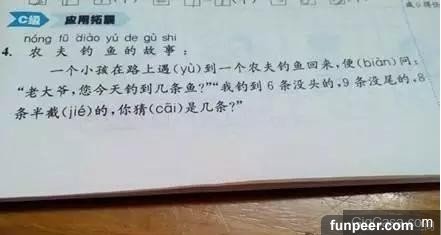 C级 应用拓展
nóng fū diào yú de gù shi
4. 农夫钓鱼的故事：
一个小孩在路上遇(yù)到一个农夫钓鱼回来,便(biàn)问：
“老大爷,您今天钓到几条鱼?”“我钓到 6 条没头的,9 条没尾的,8
条半截(jié)的,你猜(cāi)是几条?”
funpeer.com